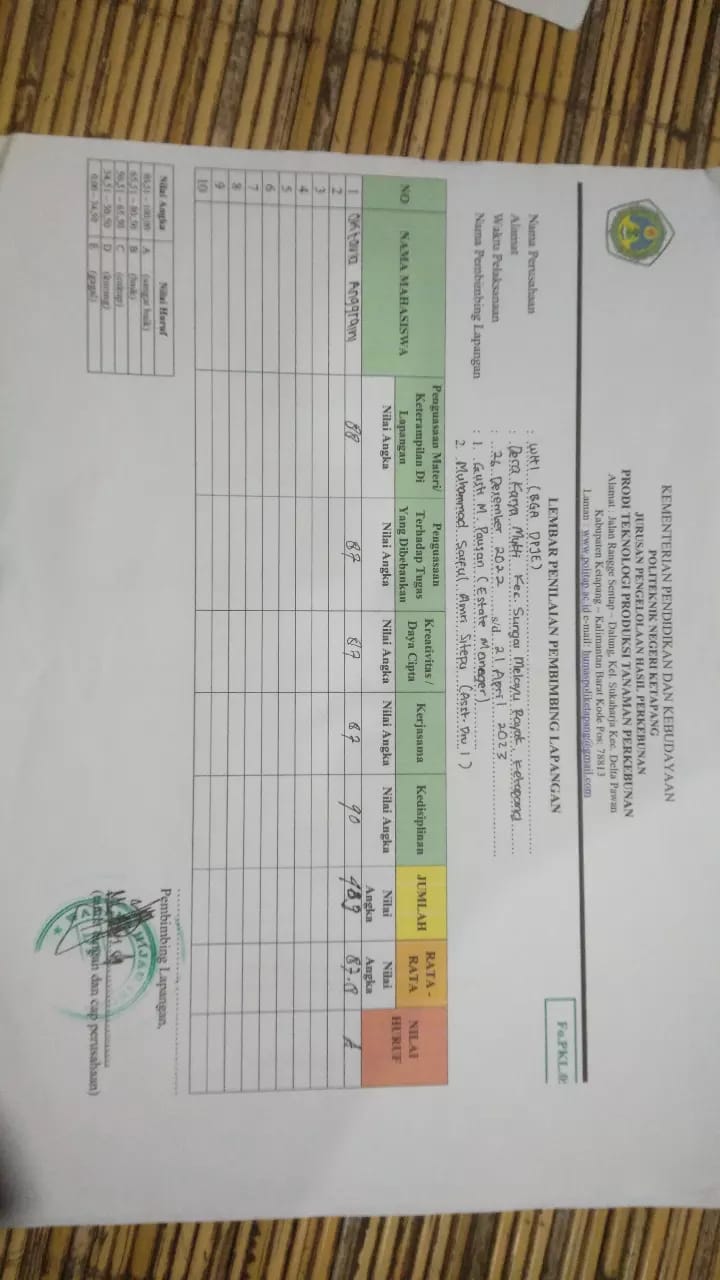 KEMENTERIAN PENDIDIKAN DAN KEBUDAYAAN
POLITEKNIK NEGERI KETAPANG
JURUSAN PENGELOLAAN HASIL PERKEBUNAN
PRODI TEKNOLOGI PRODUKSI TANAMAN PERKEBUNAN
Alamat : Jalan Rangge Sentap – Dalung, Kel. Sukaharja Kec. Delta Pawan
Kabupaten Ketapang – Kalimantan Barat Kode Pos: 78813
Laman : www.politap.ac.id e-mail: humaspoliketapang@gmail.com
Fo.PKL.0
LEMBAR PENILAIAN PEMBIMBING LAPANGAN
Nama Perusahaan : WH1 (BGA DPJE)
Alamat : Desa Karya Mukti Kec. Sungai Melayu Rayak, Ketapang
Waktu Pelaksanaan : 26 Desember 2022 s/d 21 April 2023
Nama Pembimbing Lapangan : 1. Gusti M. Pauzan (Estate Manager)
2. Muhammad Saiful Amri Sitepu (Asst. Div 1)
NO NAMA MAHASISWA Penguasaan Materi/ Keterampilan Di Lapangan Penguasaan Terhadap Tugas Yang Dibebankan Kreativitas / Daya Cipta Kerjasama Kedisiplinan JUMLAH RATA - RATA NILAI HURUF
Nilai Angka Nilai Angka Nilai Angka Nilai Angka Nilai Angka Nilai Angka Nilai Angka
1 Oktavia Anggraini 88 87 87 87 90 439 87.8 A
2
3
4
5
6
7
8
9
10
Nilai Angka Nilai Huruf
80,51 - 100,00 A (sangat baik)
65,51 - 80,50 B (baik)
50,51 - 65,50 C (cukup)
34,51 - 50,50 D (kurang)
0,00 - 34,50 E (gagal)
Pembimbing Lapangan,
(tanda tangan dan cap perusahaan)